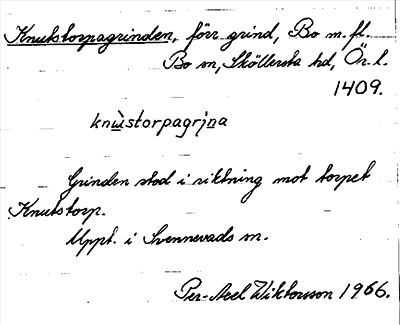 Knutstorpagrinden, förr grind, Bo m.fl.
Bo sn, Sköllersta hd, Ör. l.
1409.
knùstorpagrịna
Grinden stod i riktning mot torpet
Knutstorp.
Uppt. i Svennevads sn.
Per-Axel Wiktorsson 1966.